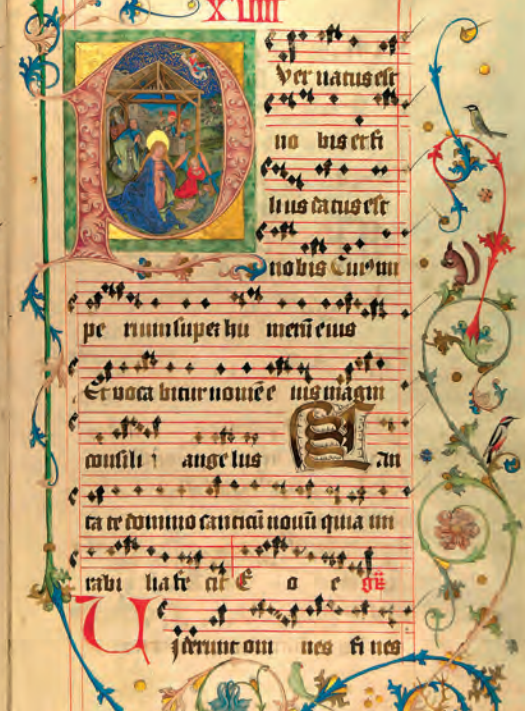 XLIIII
Puer natus est
no bis et fi
lius datus est
nobis Cuiꝰ im
pe rium super hu merū eius
Et voca bitur nomē e ius magni
consili j ange lus Can
ta te domino canticū novū quia mi
rabi lia fe cit E o e gͥ
Viderunt om nes fi nes